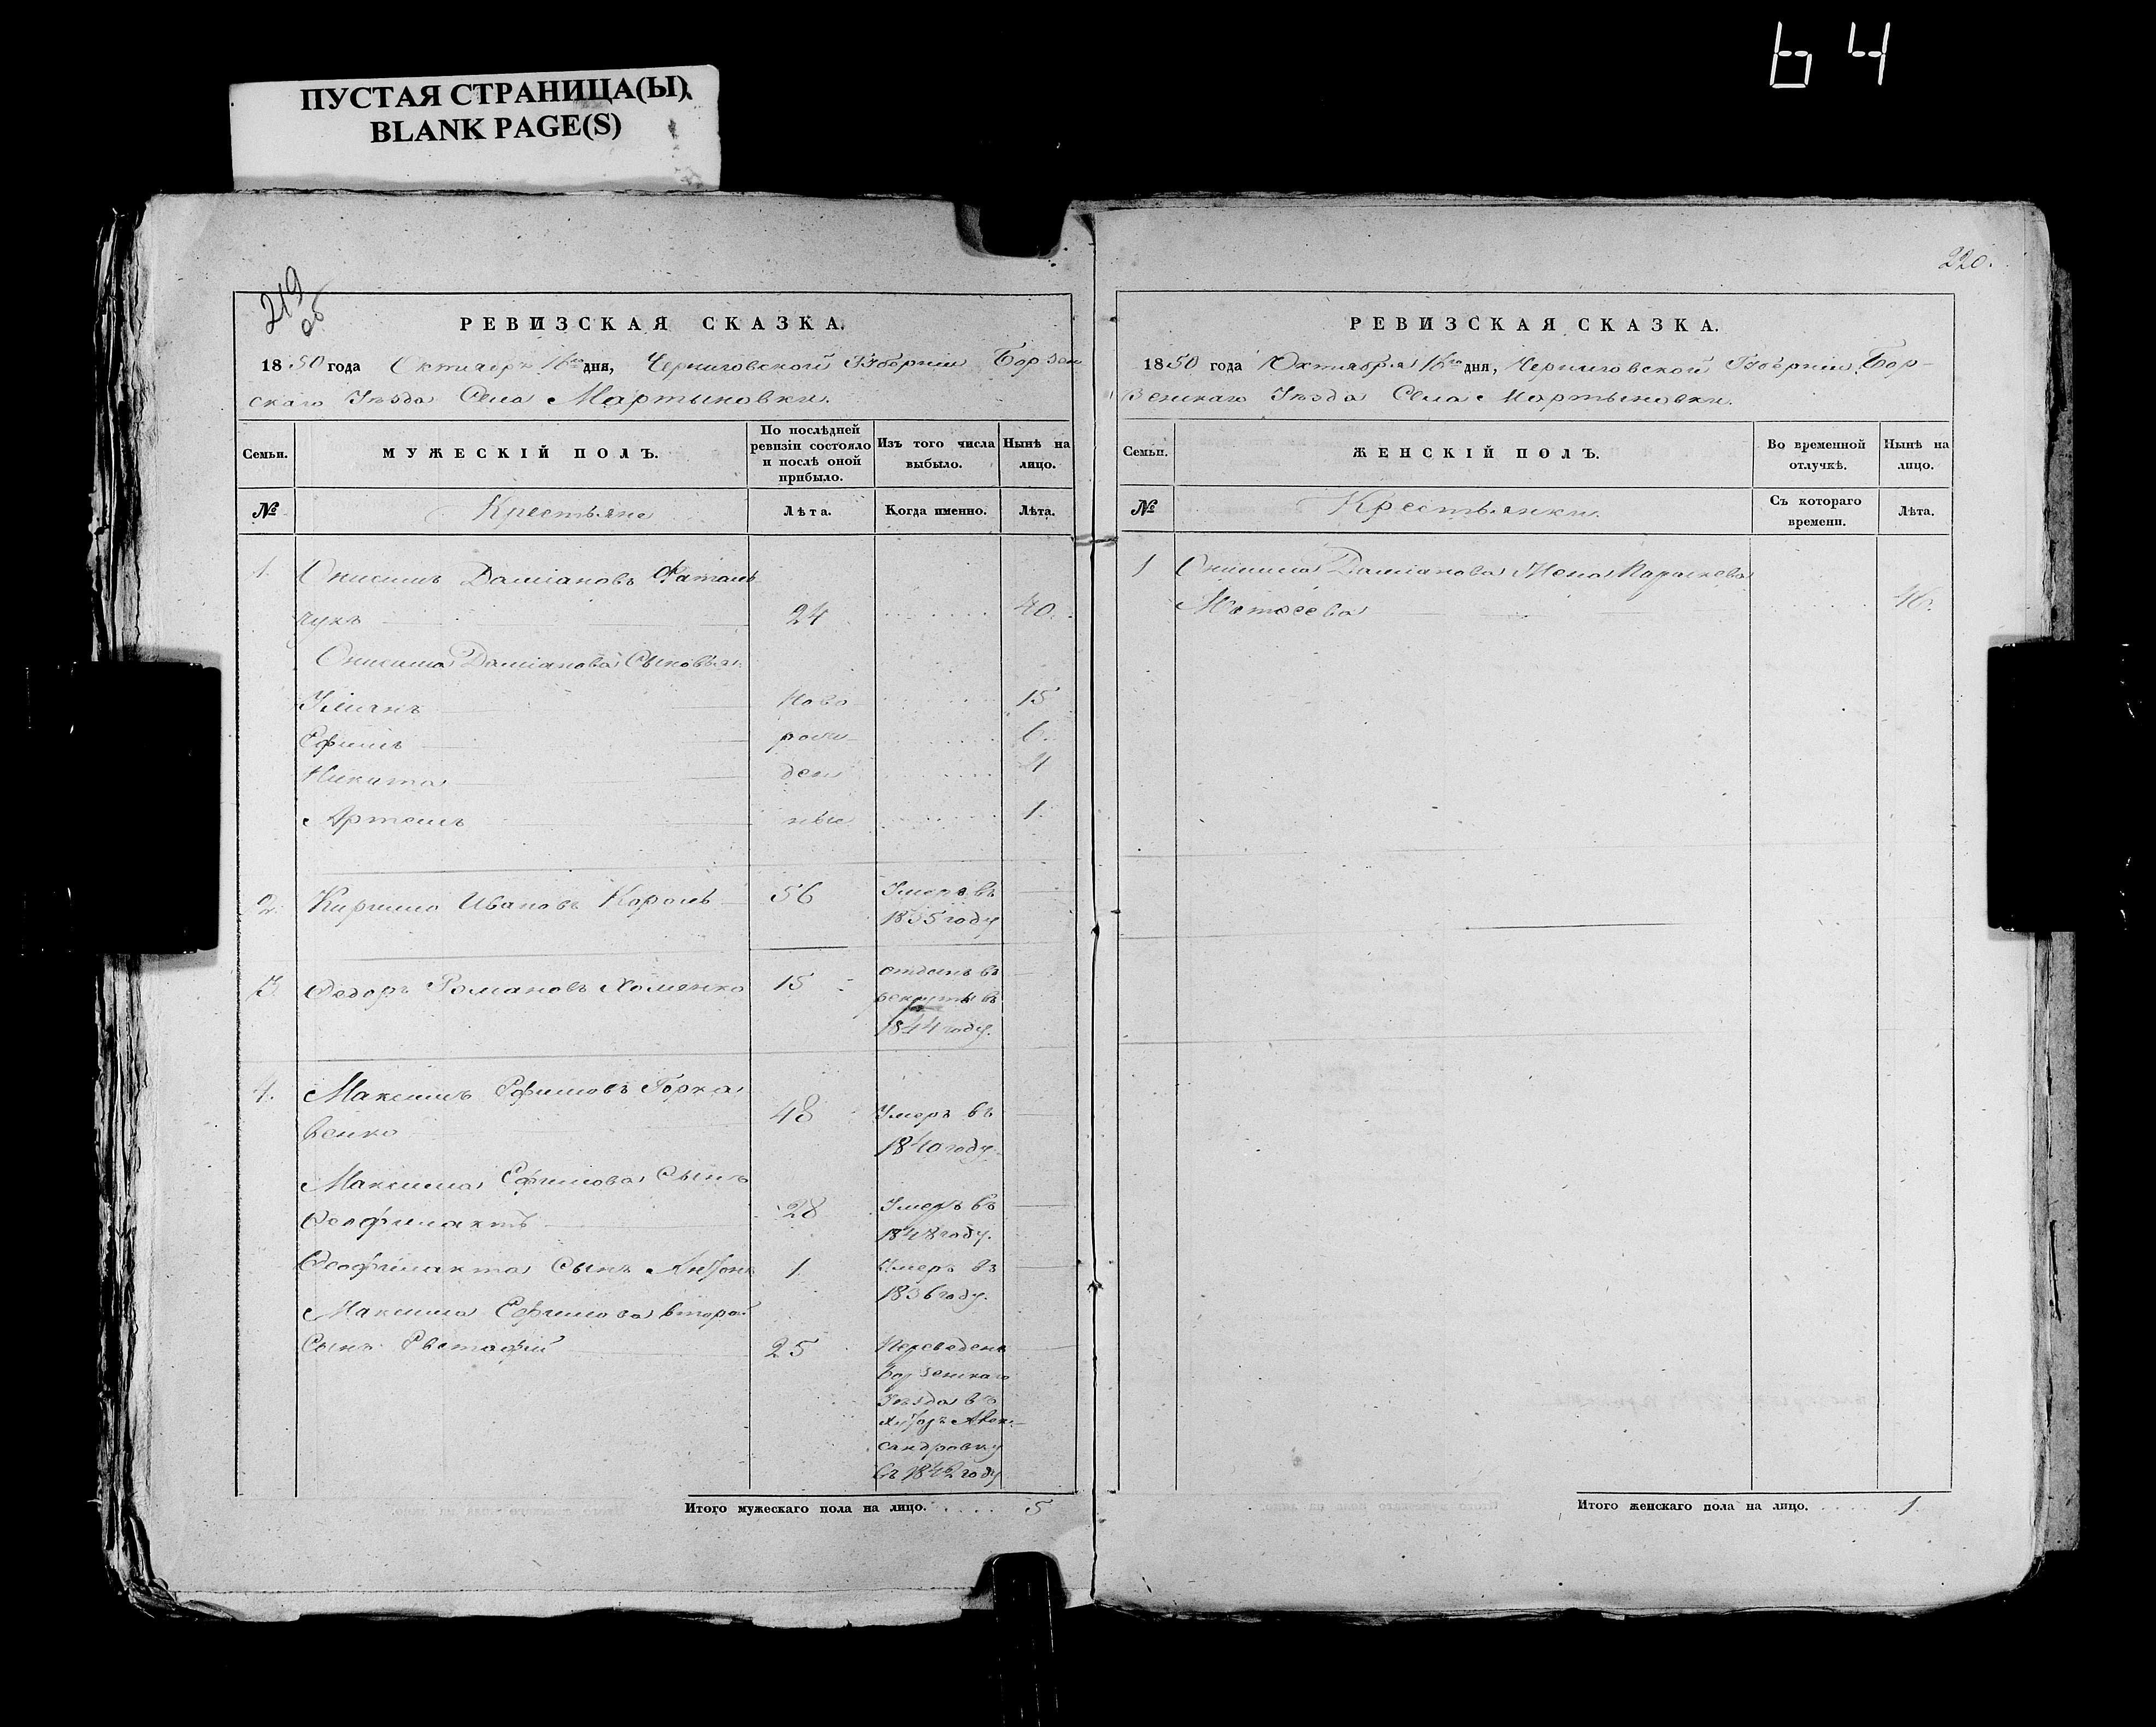 64
ПУСТАЯ СТРАНИЦА(Ы)
BLANK PAGE(S)
219
об
РЕВИЗСКАЯ СКАЗКА.
1850 года Октября 16го дня, Черниговской Губернии Борзен
скаго Уѣзда Села Мартыновки.
Семьи.
МУЖЕСКІЙ ПОЛЪ.
По послѣдней ревизіи состояло и послѣ оной прибыло.
Изъ того числа выбыло.
Нынѣ на лицо.
№
Крестьяне
Лѣта.
Когда именно.
Лѣта.
1. Онисимъ Даміановъ
чукъ 24 40.
Онисима Даміанова Сыновья:
Уліянъ Ново 15
Ефимъ рож 6.
Никита ден 4
Артемъ ные 1.
2. Кирило Ивановъ Король 56 Умеръ въ
1835 году
3. Федоръ Романовъ Хоменко 15 отданъ въ
рекруты въ
1844 году.
4. Максимъ Ефимовъ Горка
венко 48 Умеръ въ
1840 году.
Максима Ефимова Сынъ
Феофилактъ 28 Умеръ въ
1848 году.
Феофилакта Сынъ 1. Умеръ въ
1836 году.
Максима Ефимова второй
Сынъ Евстафій 25 Переведенъ
Борзенскаго
Уѣзда въ
Хуторъ Алек-
сандровку
въ 1842 году
Итого мужескаго пола на лицо. . . . . 5
220.
РЕВИЗСКАЯ СКАЗКА.
1850 года Октября 16го дня, Черниговской Губерніи Бор-
зенскаго Уѣзда Села Мартыновки.
Семьи.
ЖЕНСКІЙ ПОЛЪ.
Во временной отлучкѣ.
Нынѣ на лицо.
№
Крестьянки.
Съ котораго времени.
Лѣта.
1 Онисима Даміанова Жена Параскева
Матвеева 40.
Итого женскаго пола на лицо. . . . . 1.